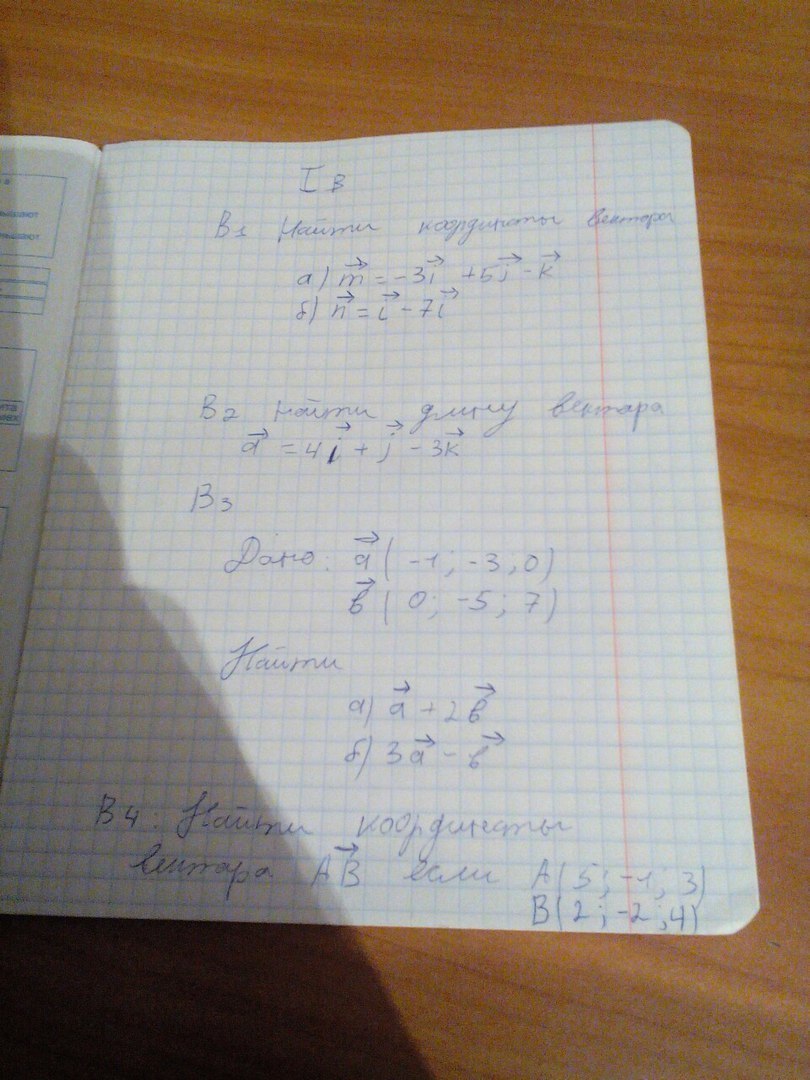 I в
В1 Найти координаты вектора
а) m = -3i + 5j - k
б) n = i - 7i
В2 Найти длину вектара
a = 4i + j - 3k
В3
Дано: a ( -1; -3, 0)
в ( 0; -5; 7)
Найти
а) a + 2в
б) 3a - в
В4: Найти координаты
вектара АВ если А( 5; -1; 3)
В( 2; -2; 4)